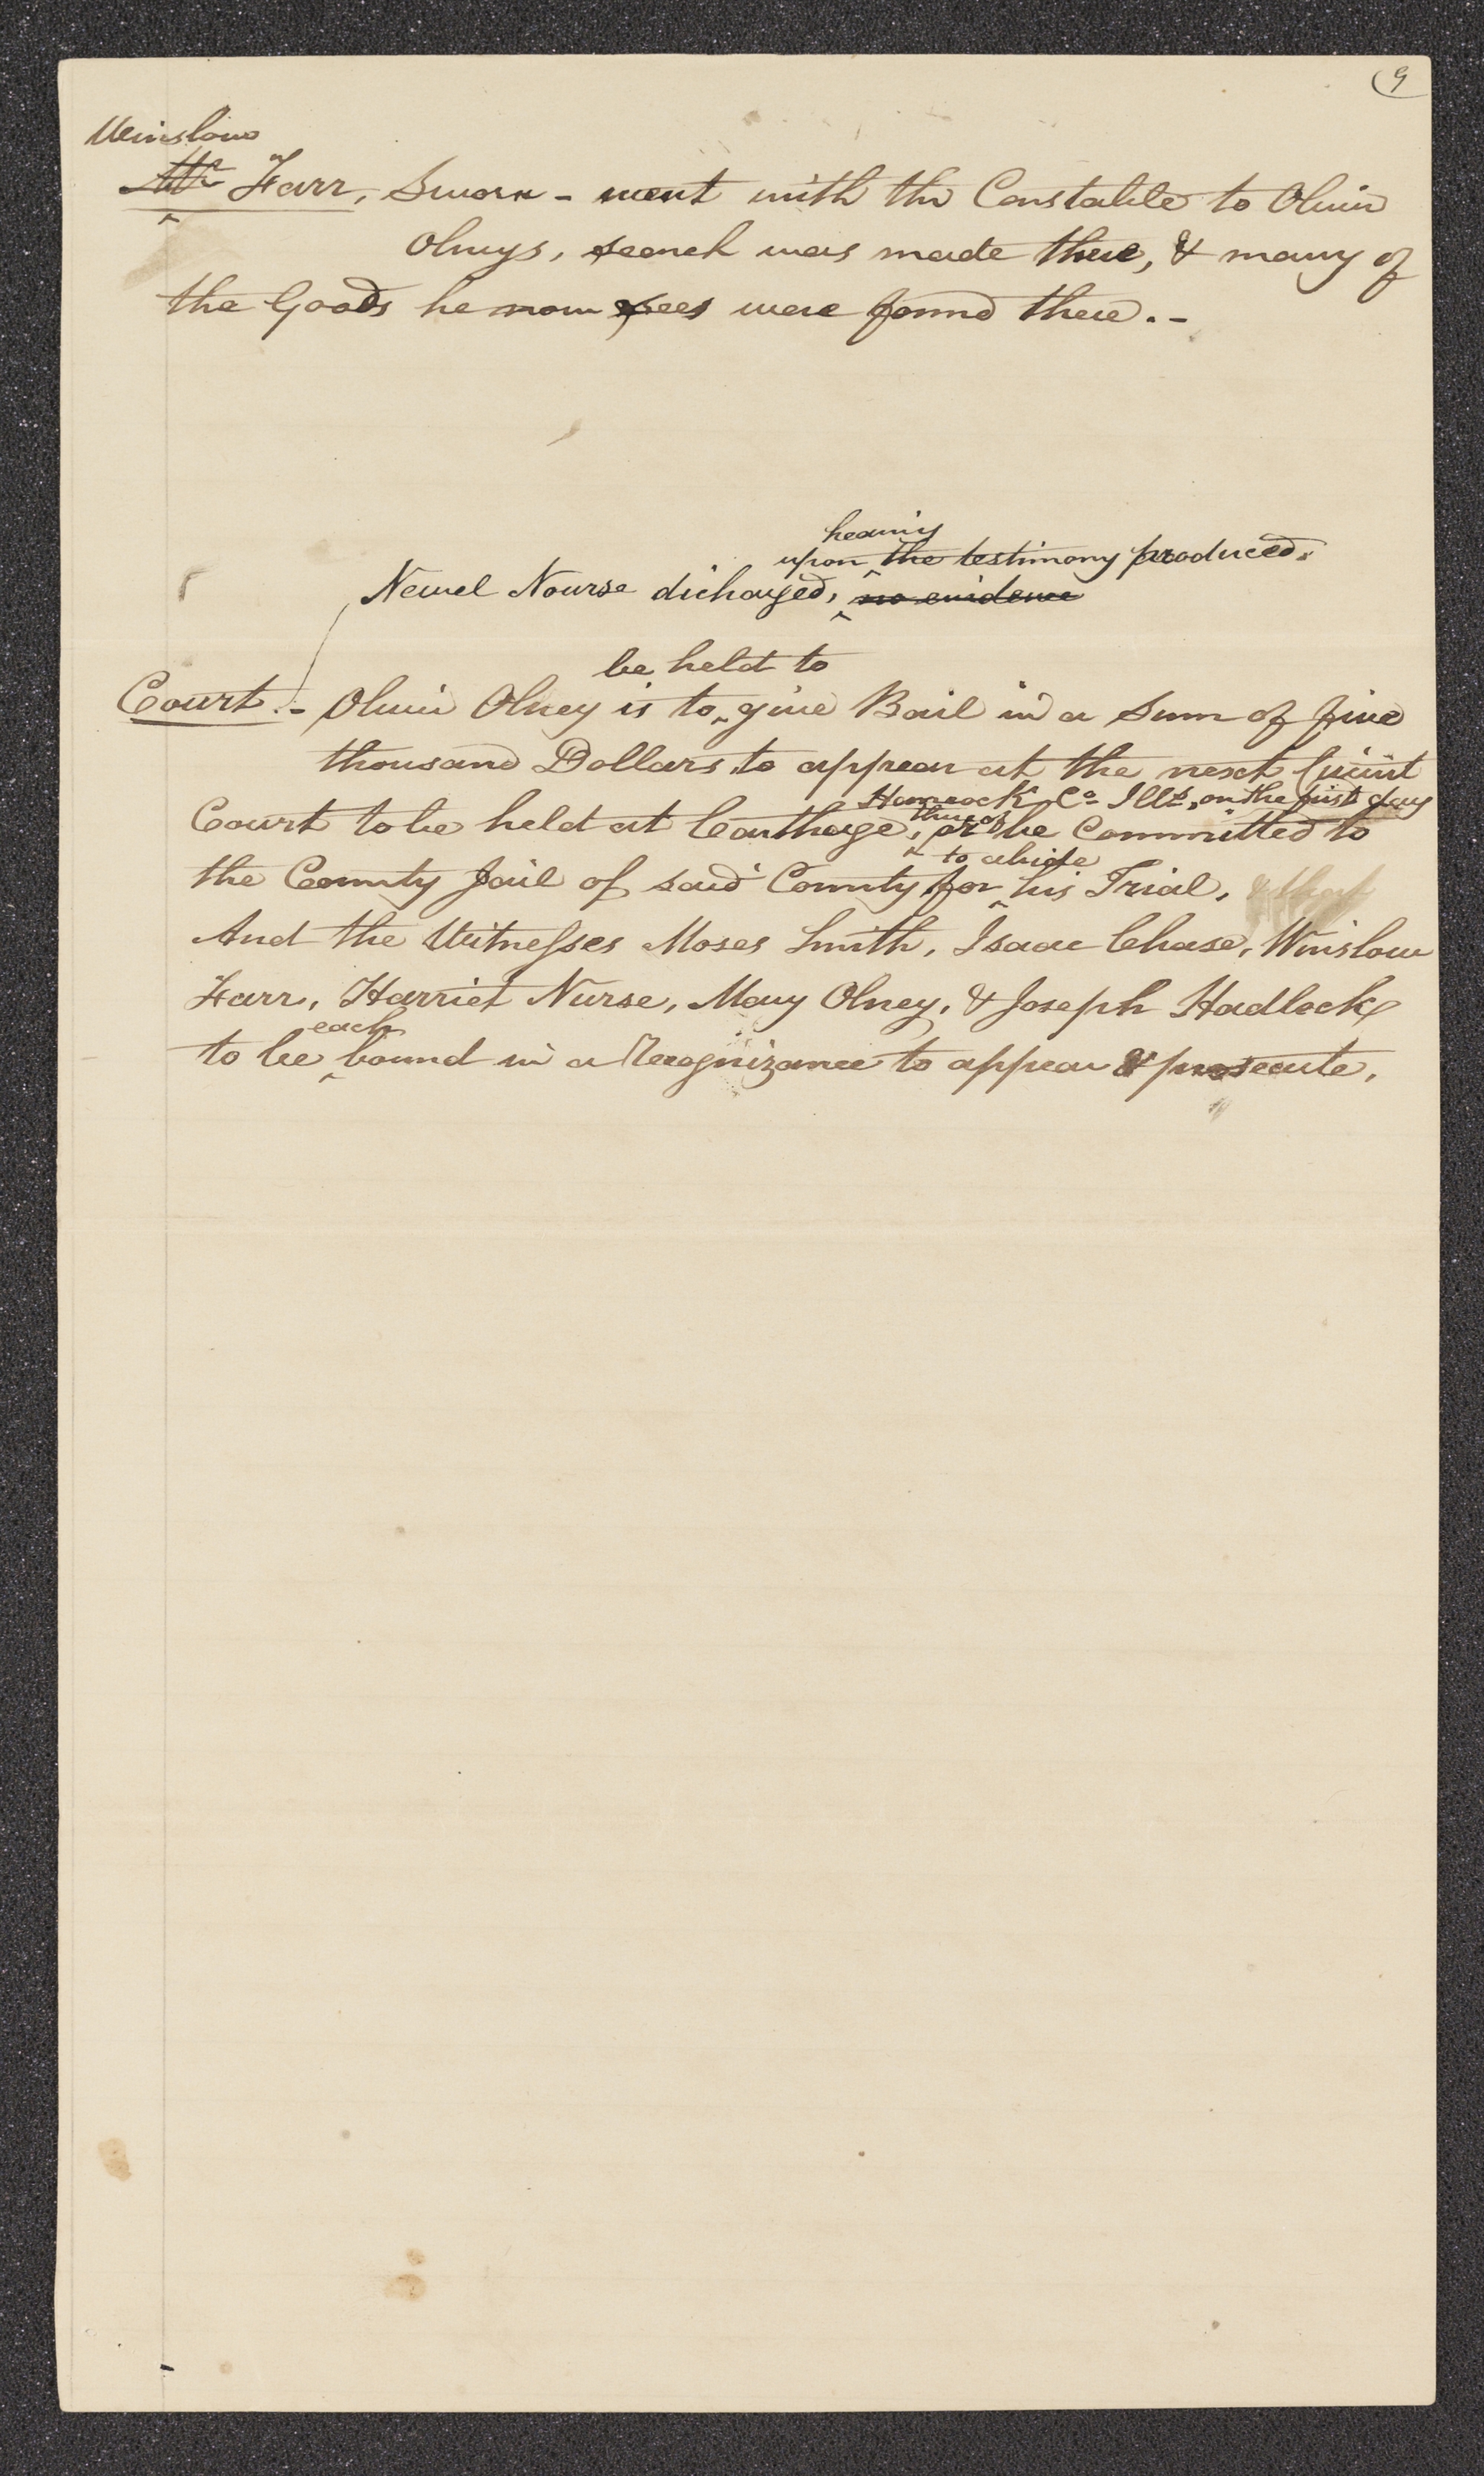 9
Winslow
Mr Farr, Sworn - went with the Constable to Oliver
Olneys, search was made there, & many of
the Goods he now sees were found there. -
hearing
upon the testimony produced.
Newel Nourse dicharged, no evidence
be held to
Court. - Oliver Olney is to give Bail in a Sum of five
thousand Dollars to appear at the next Circuit
Hancock Co. Ills, on the first day
thereof
Court to be held at Carthage, or be Committed to
to abide
the County Jail of said County for his Trial, & that
And the Witnesses Moses Smith, Isaac Chase, Winslow
Farr, Harriet Nurse, Mary Olney, & Joseph Hadlock
each
to be bound in a Recognizance to appear & prosecute,